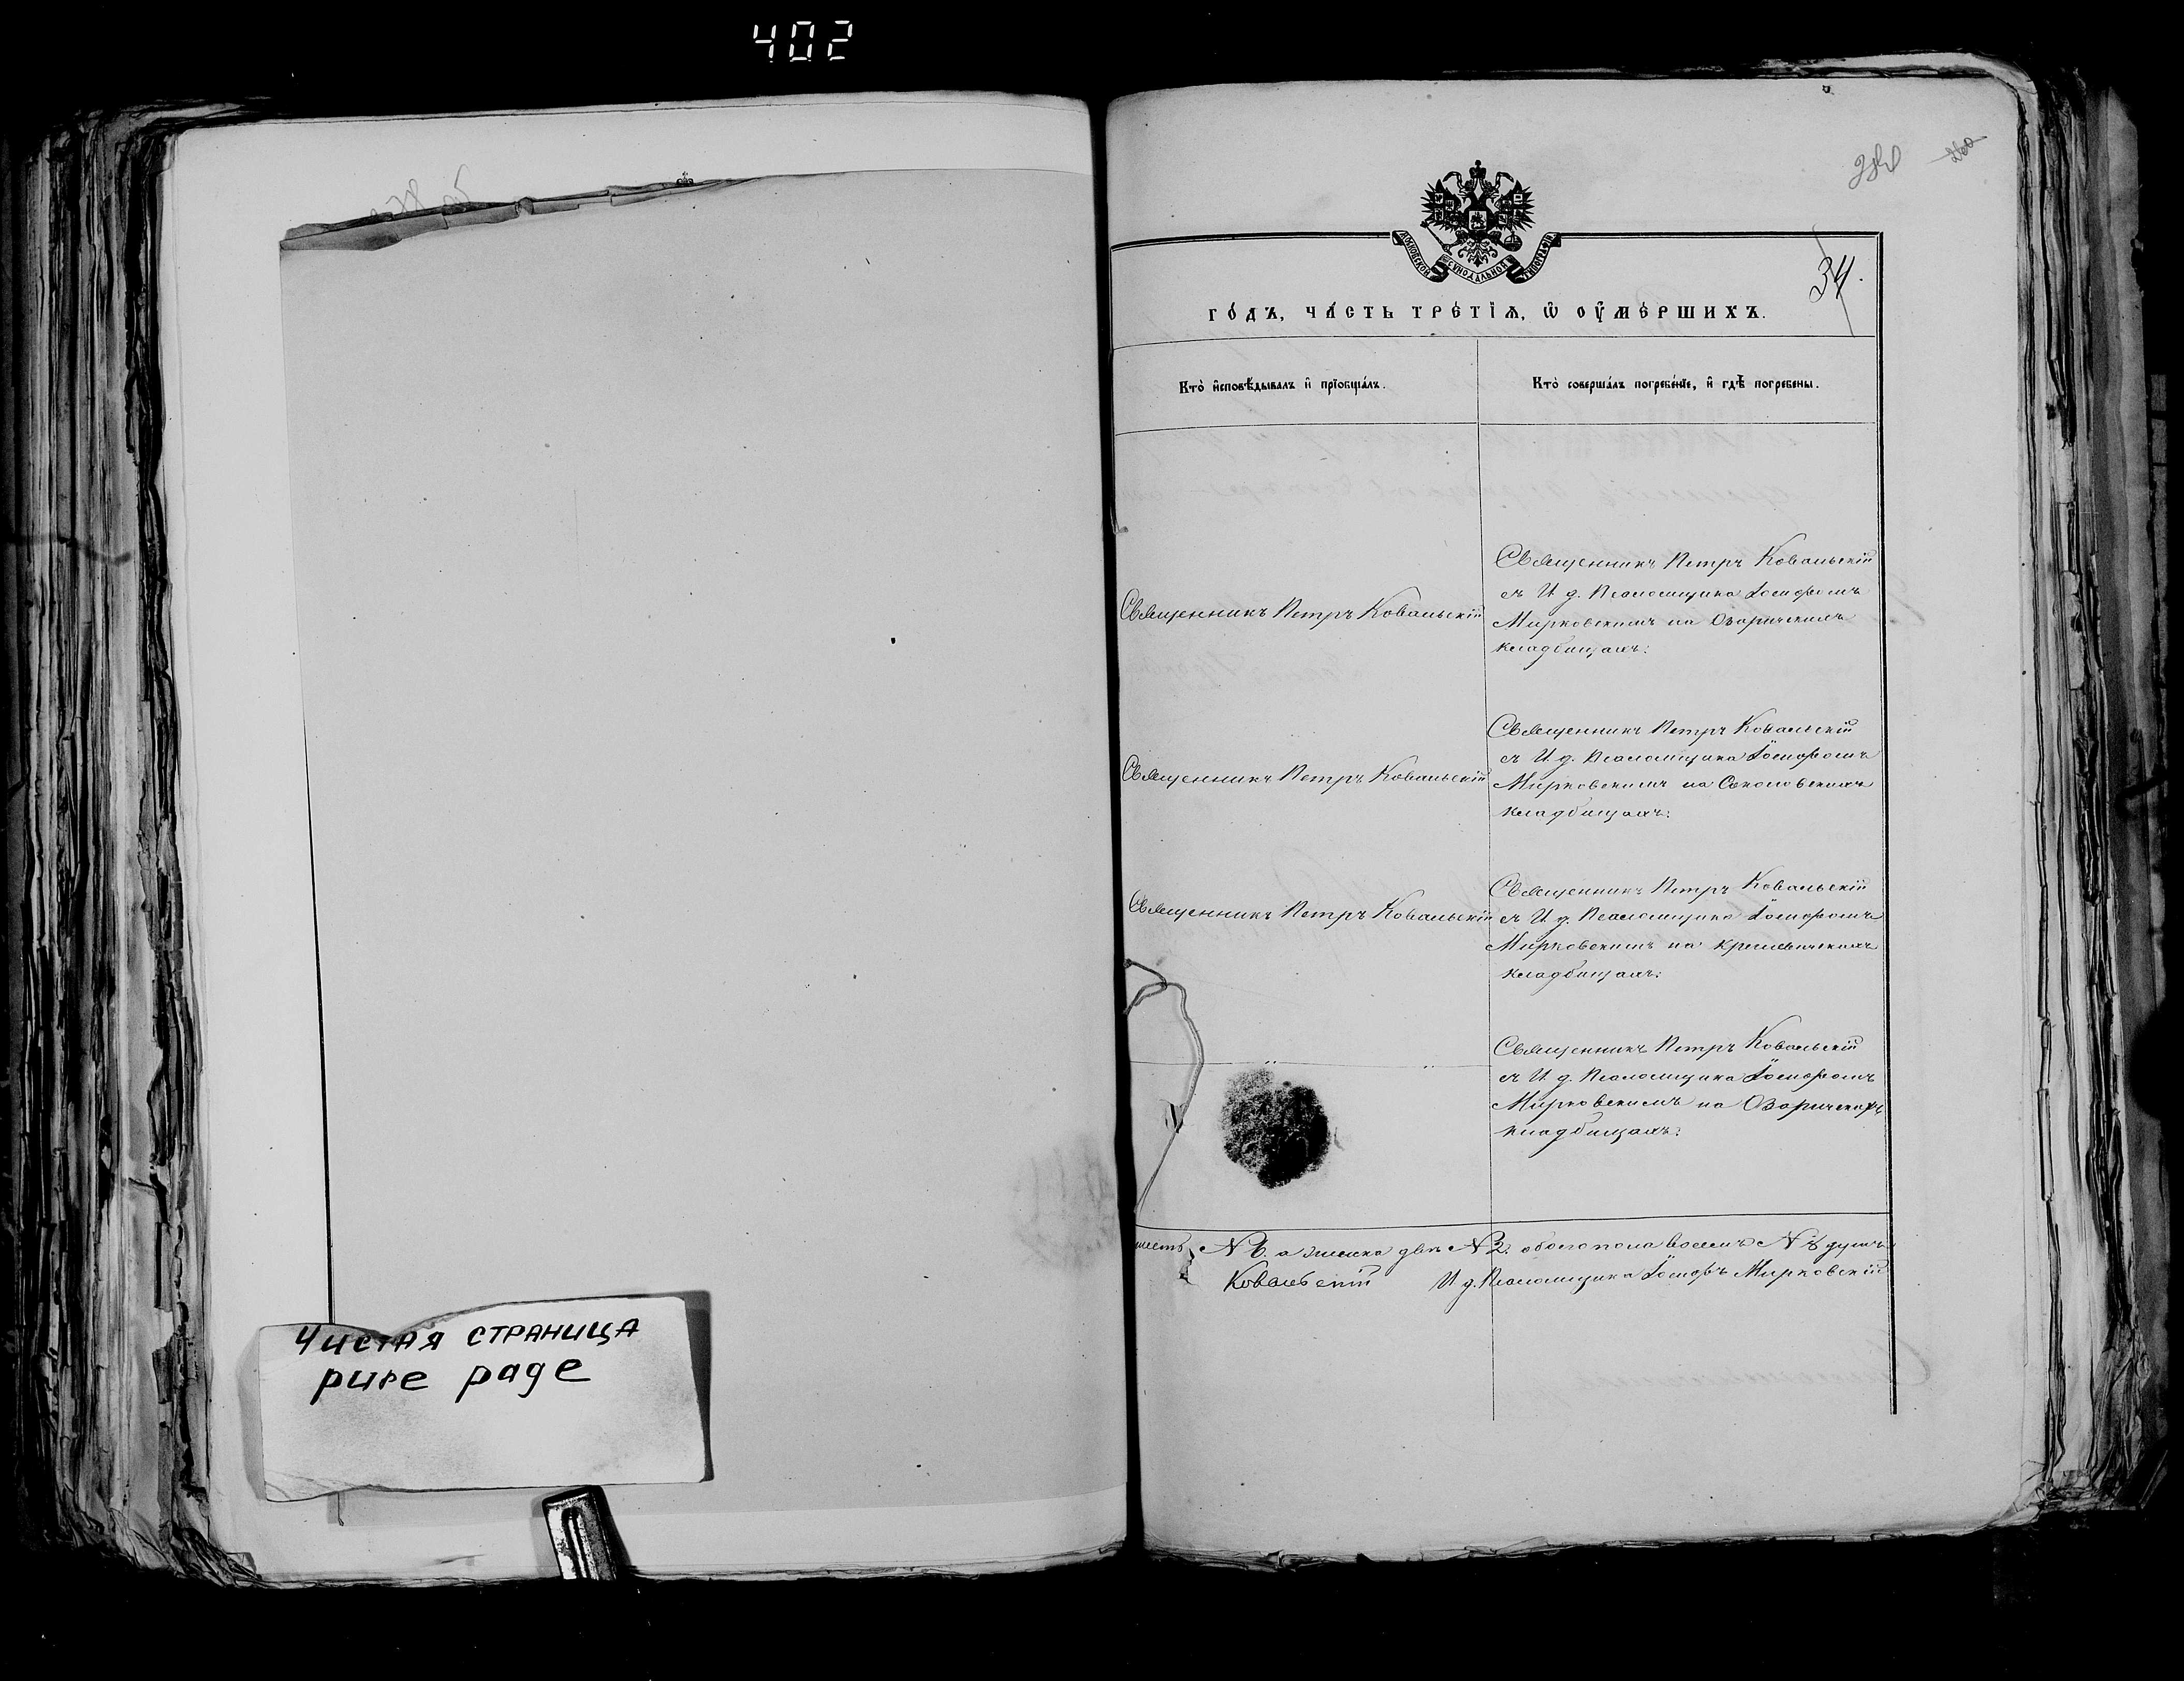 402
34.
МОСКОВСКОЙ СѴНОДАЛЬНОЙ ТИПОГРАФІИ
ГО́ДЪ, ЧА́СТЬ ТРЕ́ТІѦ, Ѡ҆ ОУ҆МЕ́РШИХЪ.
Кто̀ и҆сповѣ́дывалъ и҆ прїѡбща́лъ.
Кто̀ соверша́лъ погребе́нїе, и҆ гдѣ̀ погребены.
Священникъ Петръ Ковальскій
Священникъ Петръ Ковальскій
съ И. д. Псаломщика Іосифомъ
Мирковскимъ на Озаричскихъ
кладбищахъ.
Священникъ Петръ Ковальскій
Священникъ Петръ Ковальскій
съ И. д. Псаломщика Іосифомъ
Мирковскимъ на Соколовскихъ
кладбищахъ.
Священникъ Петръ Ковальскій
Священникъ Петръ Ковальскій
съ И. д. Псаломщика Іосифомъ
Мирковскимъ на
кладбищахъ.
Священникъ Петръ Ковальскій
съ И. д. Псаломщика Іосифомъ
Мирковскимъ на Озаричскихъ
кладбищахъ.
шесть № 6. а женска двѣ № 2. обоего пола восемь № 8 душъ
Ковальскій И. д. Псаломщика Іосифъ Мирковскій
Чистая страница
pure page